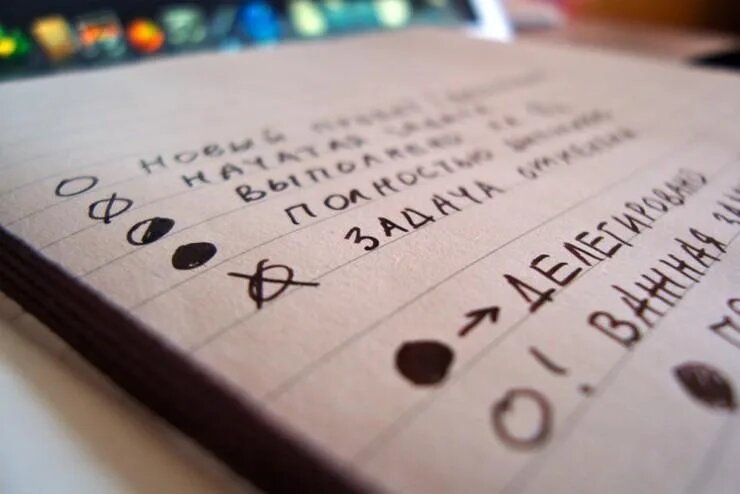 НОВЫЙ
НАЧАТАЯ ЗАДАЧА
ВЫПОЛНЕНО НА
ПОЛНОСТЬЮ
ЗАДАЧА ОТМЕНЕНА
→ ДЕЛЕГИРОВАНО
! ВАЖНАЯ